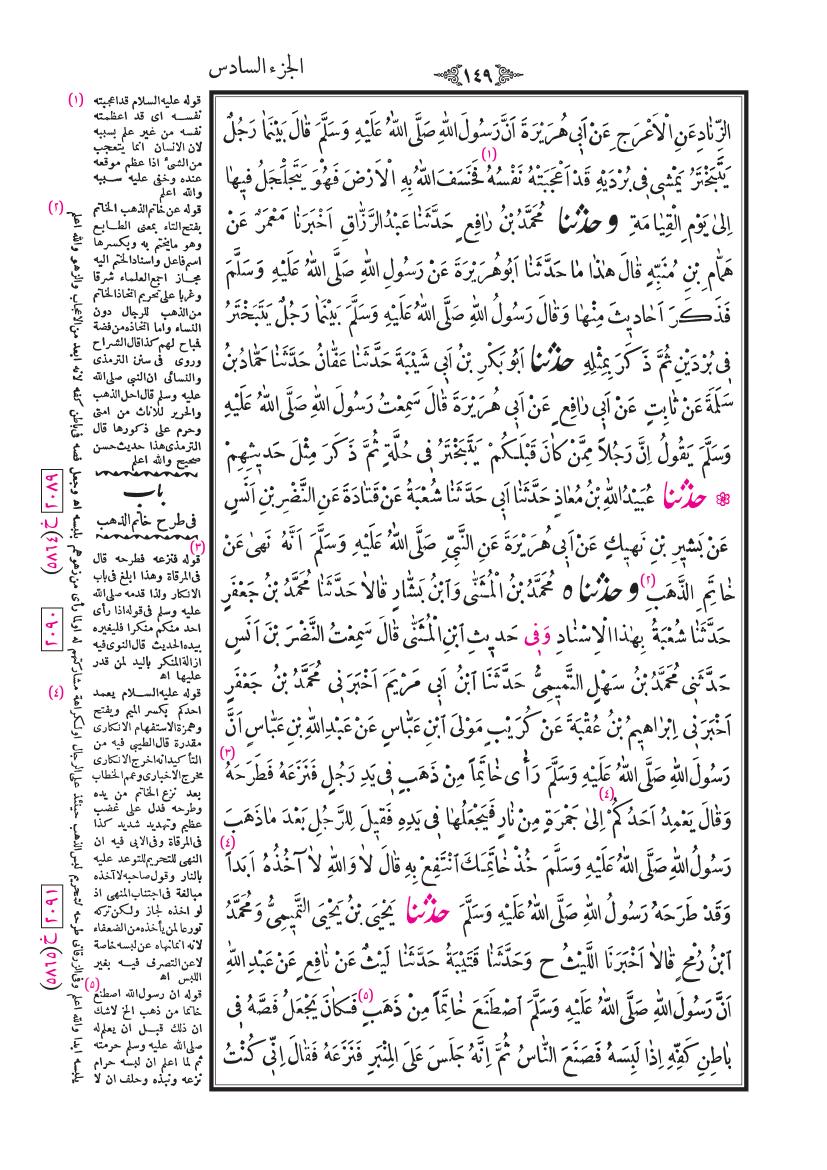 ١٤٩
الجزء السادس
الزِّنَادِ عَنِ الْاَعْرَجِ عَنْ اَبِى هُرَيْرَةَ اَنَّ رَسُولَ اللهِ صَلَّى اللهُ عَلَيْهِ وَسَلَّمَ قَالَ بَيْنَمَا رَجُلٌ
يَتَبَخْتَرُ يَمْشِى فِى بُرْدَيْهِ قَدْ اَعْجَبَتْهُ نَفْسُهُ (١) فَخَسَفَ اللهُ بِهِ الْاَرْضَ فَهُوَ يَتَجَلْجَلُ فِيهَا
اِلَى يَوْمِ الْقِيَامَةِ وَحَدَّثَنَا مُحَمَّدُ بْنُ رَافِعٍ حَدَّثَنَا عَبْدُ الرَّزَّاقِ اَخْبَرَنَا مَعْمَرٌ عَنْ
هَمَّامِ بْنِ مُنَبِّهٍ قَالَ هٰذَا مَا حَدَّثَنَا اَبُو هُرَيْرَةَ عَنْ رَسُولِ اللهِ صَلَّى اللهُ عَلَيْهِ وَسَلَّمَ
فَذَكَرَ اَحَادِيثَ مِنْهَا وَقَالَ رَسُولُ اللهِ صَلَّى اللهُ عَلَيْهِ وَسَلَّمَ بَيْنَمَا رَجُلٌ يَتَبَخْتَرُ
فِى بُرْدَيْنِ ثُمَّ ذَكَرَ بِمِثْلِهِ حَدَّثَنَا اَبُو بَكْرِ بْنُ اَبِى شَيْبَةَ حَدَّثَنَا عَفَّانُ حَدَّثَنَا حَمَّادُ بْنُ
سَلَمَةَ عَنْ ثَابِتٍ عَنْ اَبِى رَافِعٍ عَنْ اَبِى هُرَيْرَةَ قَالَ سَمِعْتُ رَسُولَ اللهِ صَلَّى اللهُ عَلَيْهِ
وَسَلَّمَ يَقُولُ اِنَّ رَجُلاً مِمَّنْ كَانَ قَبْلَكُمْ يَتَبَخْتَرُ فِى حُلَّةٍ ثُمَّ ذَكَرَ مِثْلَ حَدِيثِهِمْ
حَدَّثَنَا عُبَيْدُ اللهِ بْنُ مُعَاذٍ حَدَّثَنَا اَبِى حَدَّثَنَا شُعْبَةُ عَنْ قَتَادَةَ عَنِ النَّضْرِ بْنِ اَنَسٍ
عَنْ بَشِيرِ بْنِ نَهِيكٍ عَنْ اَبِى هُرَيْرَةَ عَنِ النَّبِىِّ صَلَّى اللهُ عَلَيْهِ وَسَلَّمَ اَنَّهُ نَهَى عَنْ
خَاتَمِ الذَّهَبِ (٢) وَحَدَّثَنَاه مُحَمَّدُ بْنُ الْمُثَنَّى وَابْنُ بَشَّارٍ قَالَا حَدَّثَنَا مُحَمَّدُ بْنُ جَعْفَرٍ
حَدَّثَنَا شُعْبَةُ بِهٰذَا الْاِسْنَادِ وَفِى حَدِيثِ ابْنِ الْمُثَنَّى قَالَ سَمِعْتُ النَّضْرَ بْنَ اَنَسٍ
حَدَّثَنِى مُحَمَّدُ بْنُ سَهْلٍ التَّمِيمِىُّ حَدَّثَنَا ابْنُ اَبِى مَرْيَمَ اَخْبَرَنِى مُحَمَّدُ بْنُ جَعْفَرٍ
اَخْبَرَنِى اِبْرَاهِيمُ بْنُ عُقْبَةَ عَنْ كُرَيْبٍ مَوْلَى ابْنِ عَبَّاسٍ عَنْ عَبْدِ اللهِ بْنِ عَبَّاسٍ اَنَّ
رَسُولَ اللهِ صَلَّى اللهُ عَلَيْهِ وَسَلَّمَ رَأَى خَاتَمًا مِنْ ذَهَبٍ فِى يَدِ رَجُلٍ فَنَزَعَهُ فَطَرَحَهُ (٣)
وَقَالَ يَعْمِدُ اَحَدُكُمْ (٤) اِلَى جَمْرَةٍ مِنْ نَارٍ فَيَجْعَلُهَا فِى يَدِهِ فَقِيلَ لِلرَّجُلِ بَعْدَ مَا ذَهَبَ
رَسُولُ اللهِ صَلَّى اللهُ عَلَيْهِ وَسَلَّمَ خُذْ خَاتَمَكَ انْتَفِعْ بِهِ قَالَ لَا وَاللهِ لَا آخُذُهُ اَبَدًا (٤)
وَقَدْ طَرَحَهُ رَسُولُ اللهِ صَلَّى اللهُ عَلَيْهِ وَسَلَّمَ حَدَّثَنَا يَحْيَى بْنُ يَحْيَى التَّمِيمِىُّ وَمُحَمَّدُ
ابْنُ رُمْحٍ قَالَا اَخْبَرَنَا اللَّيْثُ ح وَحَدَّثَنَا قُتَيْبَةُ حَدَّثَنَا لَيْثٌ عَنْ نَافِعٍ عَنْ عَبْدِ اللهِ
اَنَّ رَسُولَ اللهِ صَلَّى اللهُ عَلَيْهِ وَسَلَّمَ اصْطَنَعَ خَاتَمًا مِنْ ذَهَبٍ (٥) فَكَانَ يَجْعَلُ فَصَّهُ فِى
بَاطِنِ كَفِّهِ اِذَا لَبِسَهُ فَصَنَعَ النَّاسُ ثُمَّ اِنَّهُ جَلَسَ عَلَى الْمِنْبَرِ فَنَزَعَهُ فَقَالَ اِنِّى كُنْتُ
(١) قوله عليه السلام قد اعجبته
نفسه اى قد اعظمته
نفسه من غير علم بسببه
لان الانسان انما يتعجب
من الشئ اذا عظم موقعه
عنده وخفى عليه سببه
والله اعلم
(٢) قوله عن خاتم الذهب الخاتم
بفتح التاء بمعنى الطابع
وهو ما يختم به وبكسرها
اسم فاعل واسناد الختم اليه
مجاز اجمع العلماء شرقا
وغربا على تحريم اتخاذ الخاتم
من الذهب للرجال دون
النساء واما اتخاذه من فضة
فمباح لهم كذا قال الشراح
وروى فى سنن الترمذى
والنسائى ان النبى صلى الله
عليه وسلم قال احل الذهب
والحرير للاناث من امتى
وحرم على ذكورها قال
الترمذى هذا حديث حسن
صحيح والله اعلم
باب
فى طرح خاتم الذهب
(٣) قوله فنزعه فطرحه قال
فى المرقاة وهذا ابلغ فى باب
الانكار ولذا قدمه صلى الله
عليه وسلم فى قوله اذا رأى
احد منكم منكرا فليغيره
بيده الحديث قال النووى فيه
ازالة المنكر باليد لمن قدر
عليها اه
(٤) قوله عليه السلام يعمد
احدكم بكسر الميم ويفتح
وهمزة الاستفهام الانكارى
مقدرة قال الطيبى فيه من
التأكيد انه اخرج الانكارى
مخرج الاخبارى وعمم الخطاب
بعد نزع الخاتم من يده
وطرحه فدل على غضب
عظيم وتهديد شديد كذا
فى المرقاة وفى الابى فيه ان
النهى للتحريم للتوعد عليه
بالنار وقول صاحبه لا آخذه
مبالغة فى اجتناب المنهى اذ
لو اخذه لجاز ولكن تركه
تورعا لمن يأخذه من الضعفاء
لانه انما نهاه عن لبسه خاصة
لا عن التصرف فيه بغير
اللبس اه
(٥) قوله ان رسول الله اصطنع
خاتما من ذهب الخ لاشك
ان ذلك قبل ان يعلمه
صلى الله عليه وسلم حرمته
ثم لما اعلم ان لبسه حرام
نزعه ونبذه وحلف ان لا
يلبسه ابدا والله اعلم
٢٠٨٩
خ (٥٨٦٤)
٢٠٩٠
٢٠٩١
خ (٥٨٦٥)